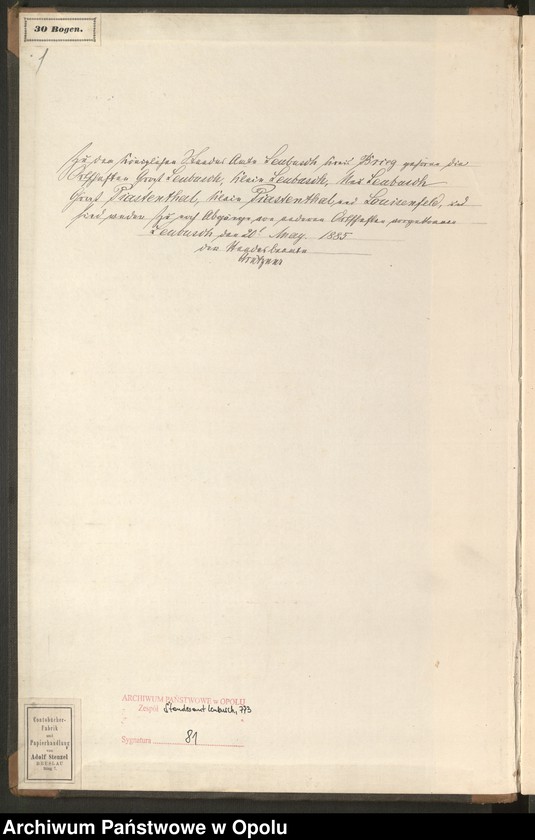 30 Bogen.
1
Zu dem Königlichen Standes Amte Leubusch Kreis Brieg gehören die
Ortschaften Groß Leubusch, Klein Leubusch, Neu Leubusch
Groß Piastenthal, Klein Piastenthal, und Louisenfeld, und
sind weder Zu noch Abgänge von anderen Ortschaften vorgekommen
Leubusch, den 20t May 1885
der Standesbeamte
ARCHIWUM PAŃSTWOWE w OPOLU
Zespół Standesamt Leubusch, 773
Sygnatura 81
Contobücher-
Fabrik
und
Papierhandlung
von
Adolf Stenzel
BRESLAU
Ring 7.
Archiwum Państwowe w Opolu